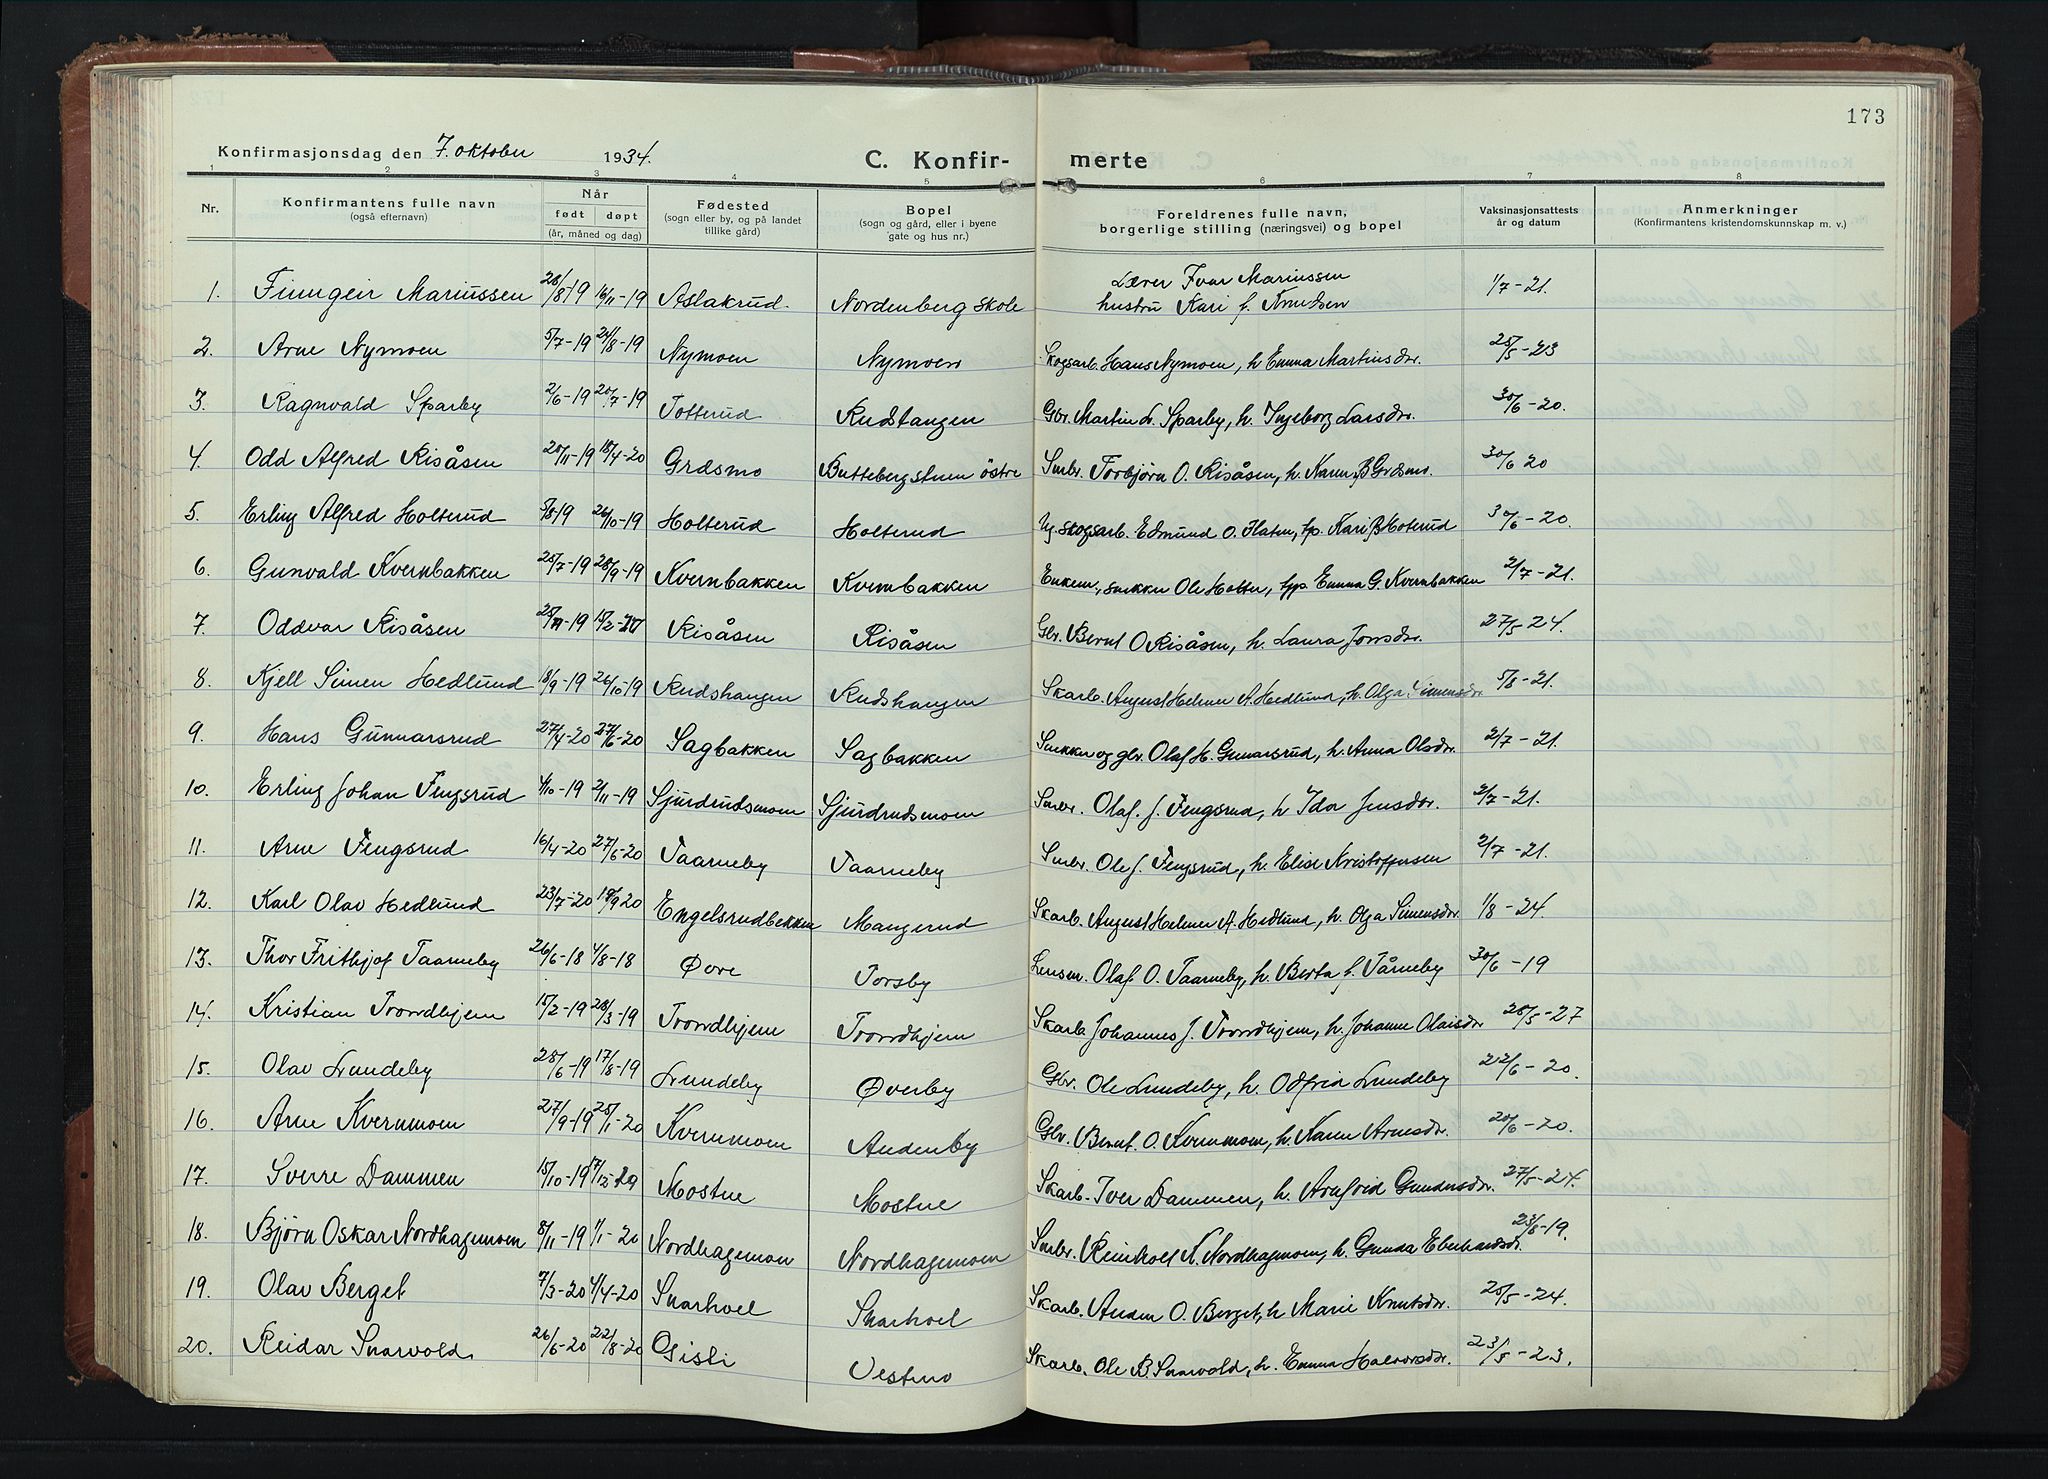 173
Konfirmasjonsdag den 7. oktober 1934.
C. Konfirmerte
1 2 3 4 5 6 7 8
Nr.
Konfirmantens fulle navn
(også efternavn)
Når
født døpt
(år, måned og dag)
Fødested
(sogn eller by, og på landet
tillike gård)
Bopel
(sogn og gård, eller i byene
gate og hus nr.)
Foreldrenes fulle navn,
borgerlige stilling (næringsvei) og bopel
Vaksinasjonsattests
år og datum
Anmerkninger
(Konfirmantens kristendomskunnskap m. v.)
1. Finngeir Mariussen 28/8-19 16/11-19 Aslakrud. Nordenberg skole Lærer Ivar Mariussen hustru Kari f. Knudsen 1/7-21.
2. Arne Nymoen 5/7-19 24/8-19 Nymoen Nymoen Skogsarb. Hans Nymoen, h Emma Martinsdr. 25/5-23
3. Ragnvald Sparby 2/6-19 20/7-19 Totterud Rudstangen Gbr. Martin L. Sparby, h. Ingeborg Larsdr. 30/6-20.
4. Odd Alfred Risåsen 28/11-19 18/4-20 Grdsmo Buttebergstuen östre Smbr. Torbjörn O. Risåsen, h. Karen B Grdsmo. 30/6 20
5. Erling Alfred Holterud 3/8 19 26/10-19 Holterud Holterud Ug. skogsarb. Edmund O. Flaten, tp. Kari B Hoterud 30/6-20.
6. Gunvald Kvernbakken 25/7-19 28/9-19 Kvernbakken Kvernbakken Enkem., snekker Ole Holter, tpp. Emma G. Kvernbakken 2/7-21.
7. Oddvar Risåsen 15/2-20 Risåsen Risåsen Gbr. Bernt O Risåsen, h. Laura Jonsdr. 27/5-24.
8. Kjell Simen Hedlund 18/9-19 26/10-19 Rudshaugen Rudshaugen Skarb. August Helmer A. Hedlund, h. Olga Simensdr 5/8-21.
9. Hans Gunnarsrud 27/4-20 27/6-20 Sagbakken Sagbakken Snekker og gbr. Olaf H. Gunnarsrud, h. Anna Olsdr. 2/7-21.
10. Erling Johan Fengsrud 4/10-19 2/11-19 Sjurdrudsmoen Sjurdrudsmoen Smbr. Olaf. J. Fengsrud, h Ida Jensdr. 2/7-21.
11. Arne Fengsrud 16/4-20 27/6-20 Taarneby Taarneby Smbr. Ole J. Fengsrud, h. Elise Kristoffersen 2/7-21.
12. Karl Olav Hedlund 23/7-20 19/9 20 Engelsrudbekken Mangerud Skarb. August Helmer A. Hedlund, h. Olga Simensdr. 1/8-24.
13. Thor Frithjof Taarneby 26/6-18 4/8-18 Øvre Torsby Lensm. Olaf O. Taarneby, h. Berta f. Tårneby 30/6-19
14. Kristian Trondhjem 15/2-19 28/3-19 Trondhjem Trondhjem Skarb. Johannes J. Trondhjem, h. Johanne Olaisdr 28/5-27
15. Olav Lundeby 28/6-19 17/8-19 Lundeby Øverby Gbr. Ole Lundeby, h. Odfrid Lundeby 22/6-20.
16. Arne Kvernmoen 27/9-19 25/1-20 Kvernmoen Audenby Gbr. Bernt. O. Kvernmoen, h. Karen Arnesdr. 20/6-20.
17. Sverre Dammen 15/10-19 7/12-19 Mostue Mostue Skarb. Iver Dammen, h. Arnfrid Gundersdr. 27/5-24.
18. Björn Oskar Nordhagemoen 8/11-19 1/1-20 Nordhagemoen Nordhagemoen Smbr. Reinholt N. Nordhagemoen, h. Gunda Eberhardsdr. 23/8-19.
19. Olav Berget 7/3-20 4/4-20 Snarhoel Snarhoel Skarb. Auden O. Berget, h Marie Knutsdr. 25/5-24.
20. Reidar Snarvold. 26/6-20 22/8-20 Gisli Vestmo Skarb. Ole B. Snarvold, h. Emma Halvorsdr. 23/5-23.